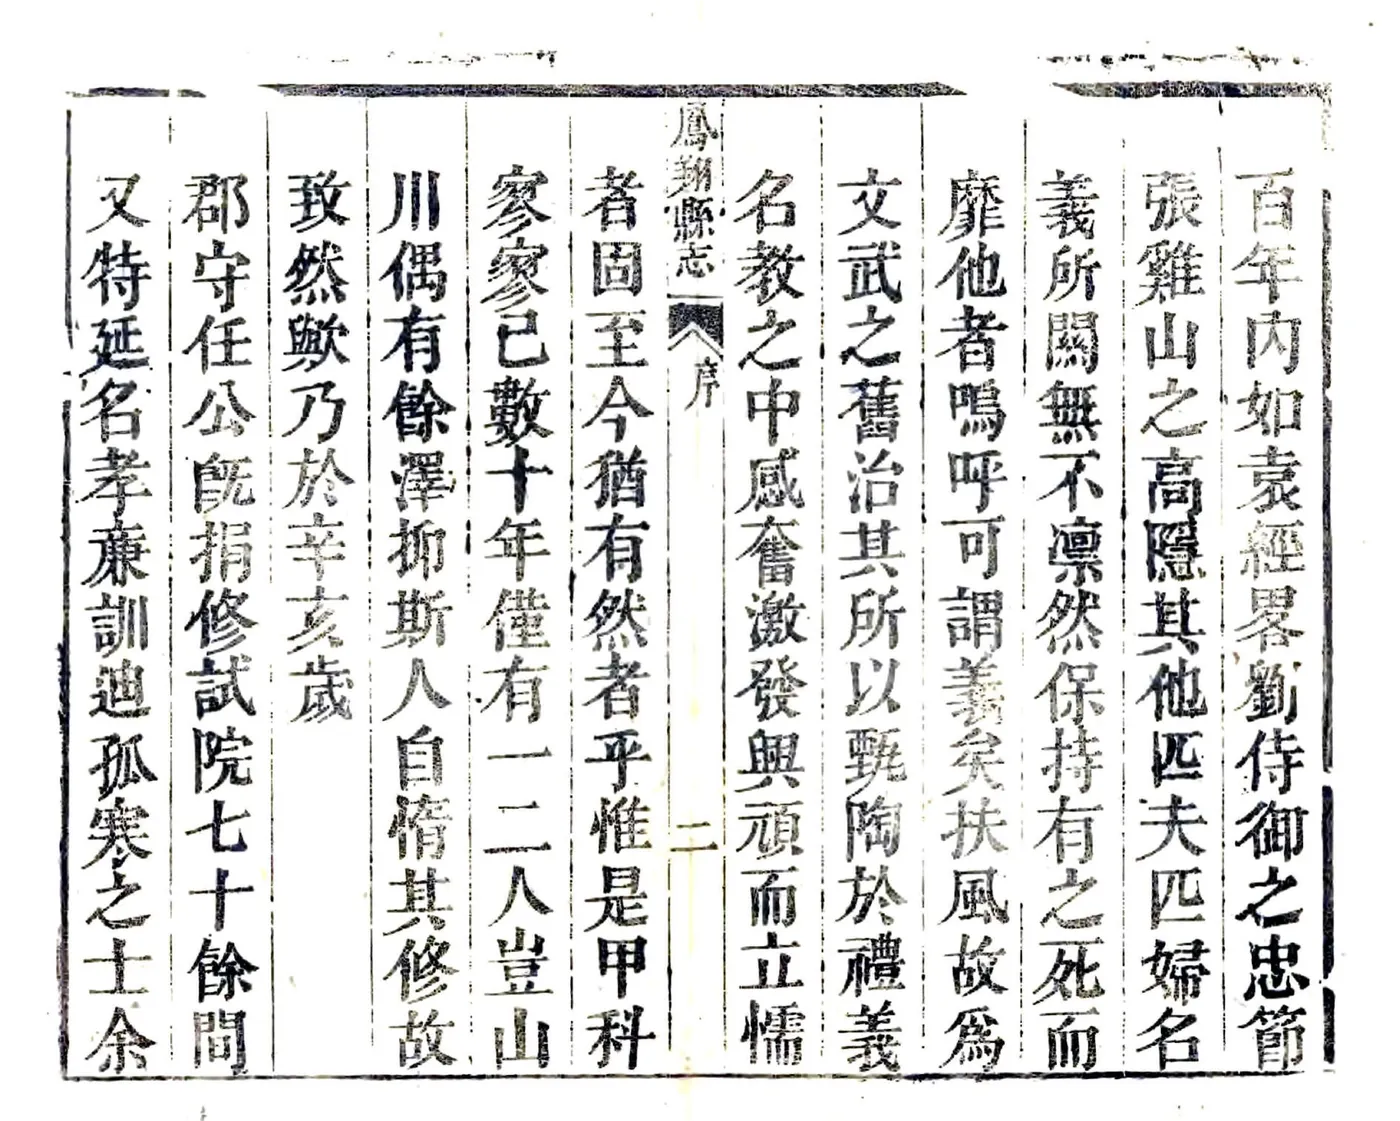 百年内如袁經畧劉侍御之忠節
張雞山之高隱其他匹夫匹婦名
義所關無不凛然保持有之死而
靡他者嗚呼可謂義矣扶風故爲
文武之舊治其所以甄陶於禮義
名教之中感奮激發興頑而立懦
鳳翔縣志
序
二
者固至今猶有然者乎惟是甲科
寥寥已數十年僅有一二人豈山
川偶有餘澤抑斯人自惰其修故
致然歟乃於辛亥歲
郡守任公旣捐修試院七十餘間
又特延名孝亷訓迪孤寒之士余